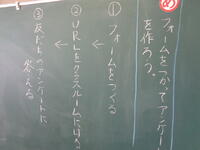 め フォームをつかってアンケート
を作ろう。
① フォームをつくる
↓
② URLをクラスルームにはる
↓
③ 友だちのアンケートに
答える